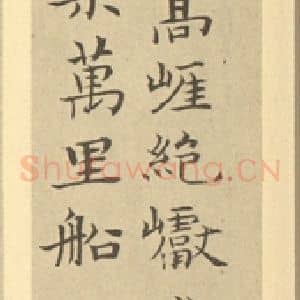 高崕絶巘
萬里船
Shufawang.CN